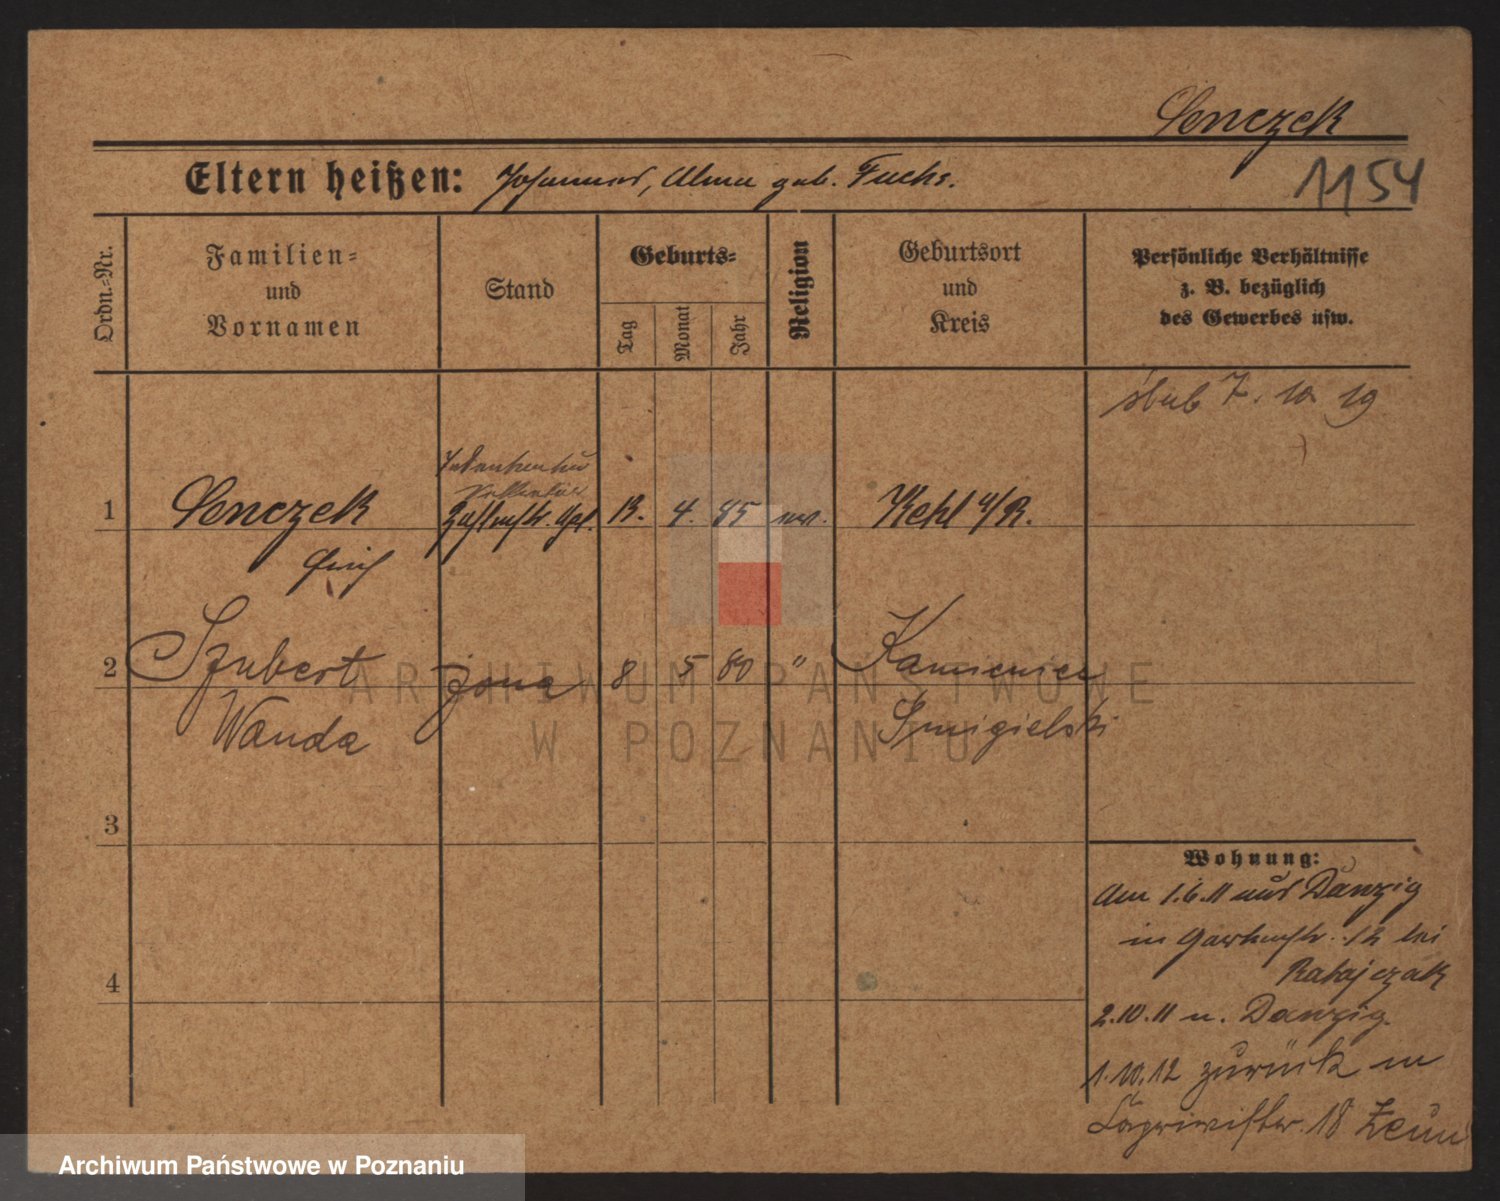 Lenczek
1154
Eltern heißen: Johannes, Alma geb. Fuchs.
Ordn.-Nr.
Familien-
und
Vornamen
Stand
Geburts-
Tag
Monat
Jahr
Religion
Geburtsort
und
Kreis
Persönliche Verhältnisse
z. B. bezüglich
des Gewerbes usw.
ślub 7. 10 19
1 Lenczek 13. 4. 85 Kehl a/R.
Erich
2 Szubert żona 8 5 80 " Kamieniec
Wanda Szmigielski
3
4
Wohnung:
Am 1.6.11 aus Danzig
in Gartenstr. 12 bei
Ratajczak
2.10.11 n. Danzig.
1.10.12 zurück in
18
ARCHIWUM PAŃSTWOWE
W POZNANIU
Archiwum Państwowe w Poznaniu